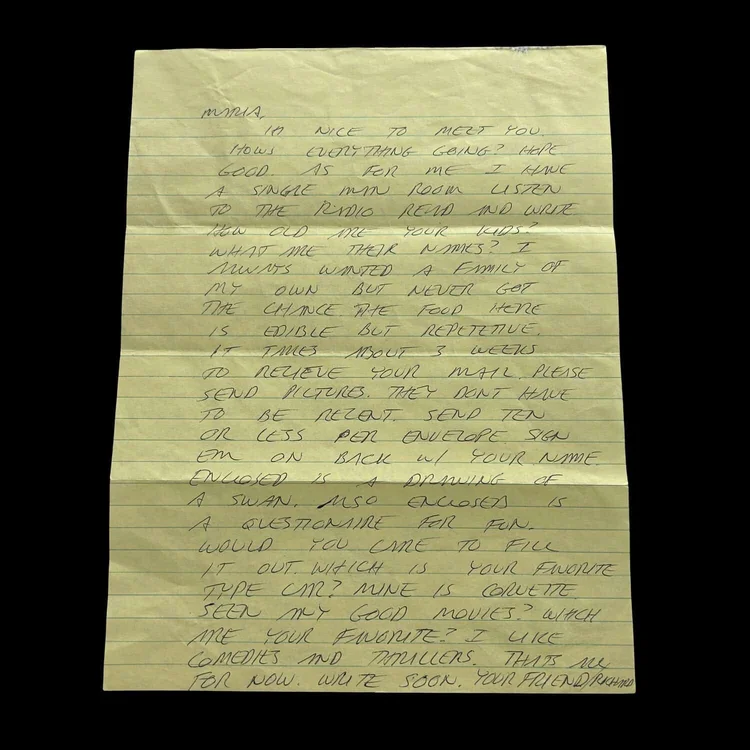 MARIA,
HI NICE TO MEET YOU.
HOWS EVERYTHING GOING? HOPE
GOOD. AS FOR ME I HAVE
A SINGLE MAN ROOM LISTEN
TO THE RADIO READ AND WRITE
HOW OLD ARE YOUR KIDS?
WHAT ARE THEIR NAMES? I
ALWAYS WANTED A FAMILY OF
MY OWN BUT NEVER GOT
THE CHANCE THE FOOD HERE
IS EDIBLE BUT REPETETIVE.
IT TAKES ABOUT 3 WEEKS
TO RECIEVE YOUR MAIL. PLEASE
SEND PICTURES. THEY DONT HAVE
TO BE RECENT. SEND TEN
OR LESS PER ENVELOPE SIGN
EM ON BACK W/ YOUR NAME.
ENCLOSED IS A DRAWING OF
A SWAN. ALSO ENCLOSED IS
A QUESTIONAIRE FOR FUN.
WOULD YOU CARE TO FILL
IT OUT. WHICH IS YOUR FAVORITE
TYPE CAR? MINE IS CORVETTE.
SEEN ANY GOOD MOVIES? WHICH
ARE YOUR FAVORITE? I LIKE
COMEDIES AND THRILLERS. THATS ALL
FOR NOW. WRITE SOON. YOUR FRIEND, RICHARD